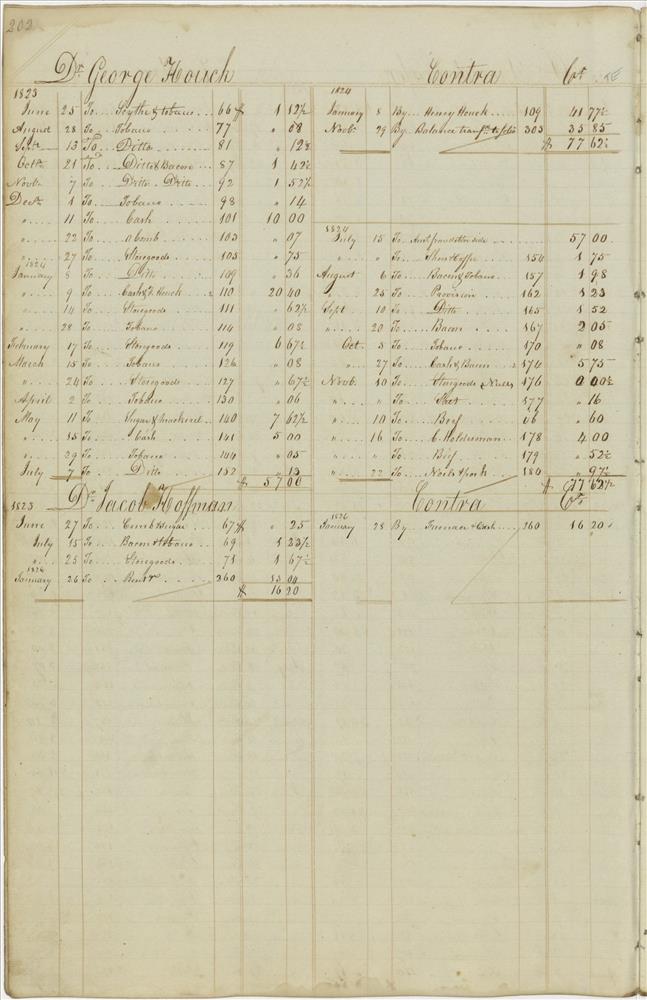 202
Dr George Houck
1823
June 25 To Scythe & tobacco 66 $ 1 12½
August 28 To Tobacco 77 " 08
13 To Ditto 81 " 12
Octr 21 To Ditto & Bacon 87 1 42½
Novbr 7 To Ditto Ditto 92 1 52½
Decr 1 To Tobacco 98 " 14
" 11 To Cash 101 10 00
" 22 To a Comb 103 " 07
" 27 To Storegoods 105 " 75
1824
January 8 To Ditto 109 " 36
" 9 To Cash & Houck 110 20 40
" 14 To Storegoods 111 " 62½
" 28 To Tobacco 114 " 08
February 17 To Storegoods 119 6 67½
March 15 To Tobacco 126 " 08
" 24 To Storegoods 127 " 67½
April 2 To Tobacco 130 " 06
May 11 To Sugar & mackerel 140 7 62½
" 13 To Cash 141 5 00
" 29 To Tobacco 144 " 05
July 7 To Ditto 152 " 13
$ 57 00
Contra Cr
1824
January 8 By Henry Houck 109 41 77½
Novbr 29 By Balance to 303 35 85
$ 77 62½
1824
July 15 To Amt from other side 57 00
" " To 154 1 75
August 6 To Bacon & Tobacco 157 1 98
" 25 To Provision 162 1 23
Sept 10 To Ditto 165 1 52
" 20 To Bacon 167 2 06
Oct 5 To Tobacco 170 " 08
" 27 To Cash & Bacon 174 5 75
Novbr 10 To Storegoods & 176 0 00½
" " To 177 " 16
" 10 To Beef " 60
" 16 To C. Holderman 178 4 00
" " To Beef 179 " 52½
" 22 To Nails & pork 180 " 97½
$ 77 62½
Dr Jacob Hoffman
1823
June 27 To Comb & sugar 67 $ " 25
July 15 To Bacon & tobacco 69 1 23½
" 25 To Storegoods 71 1 67½
1826
January 26 To 360 13 04
$ 16 20
Contra Cr
1826
January 28 By & Cash 360 16 20